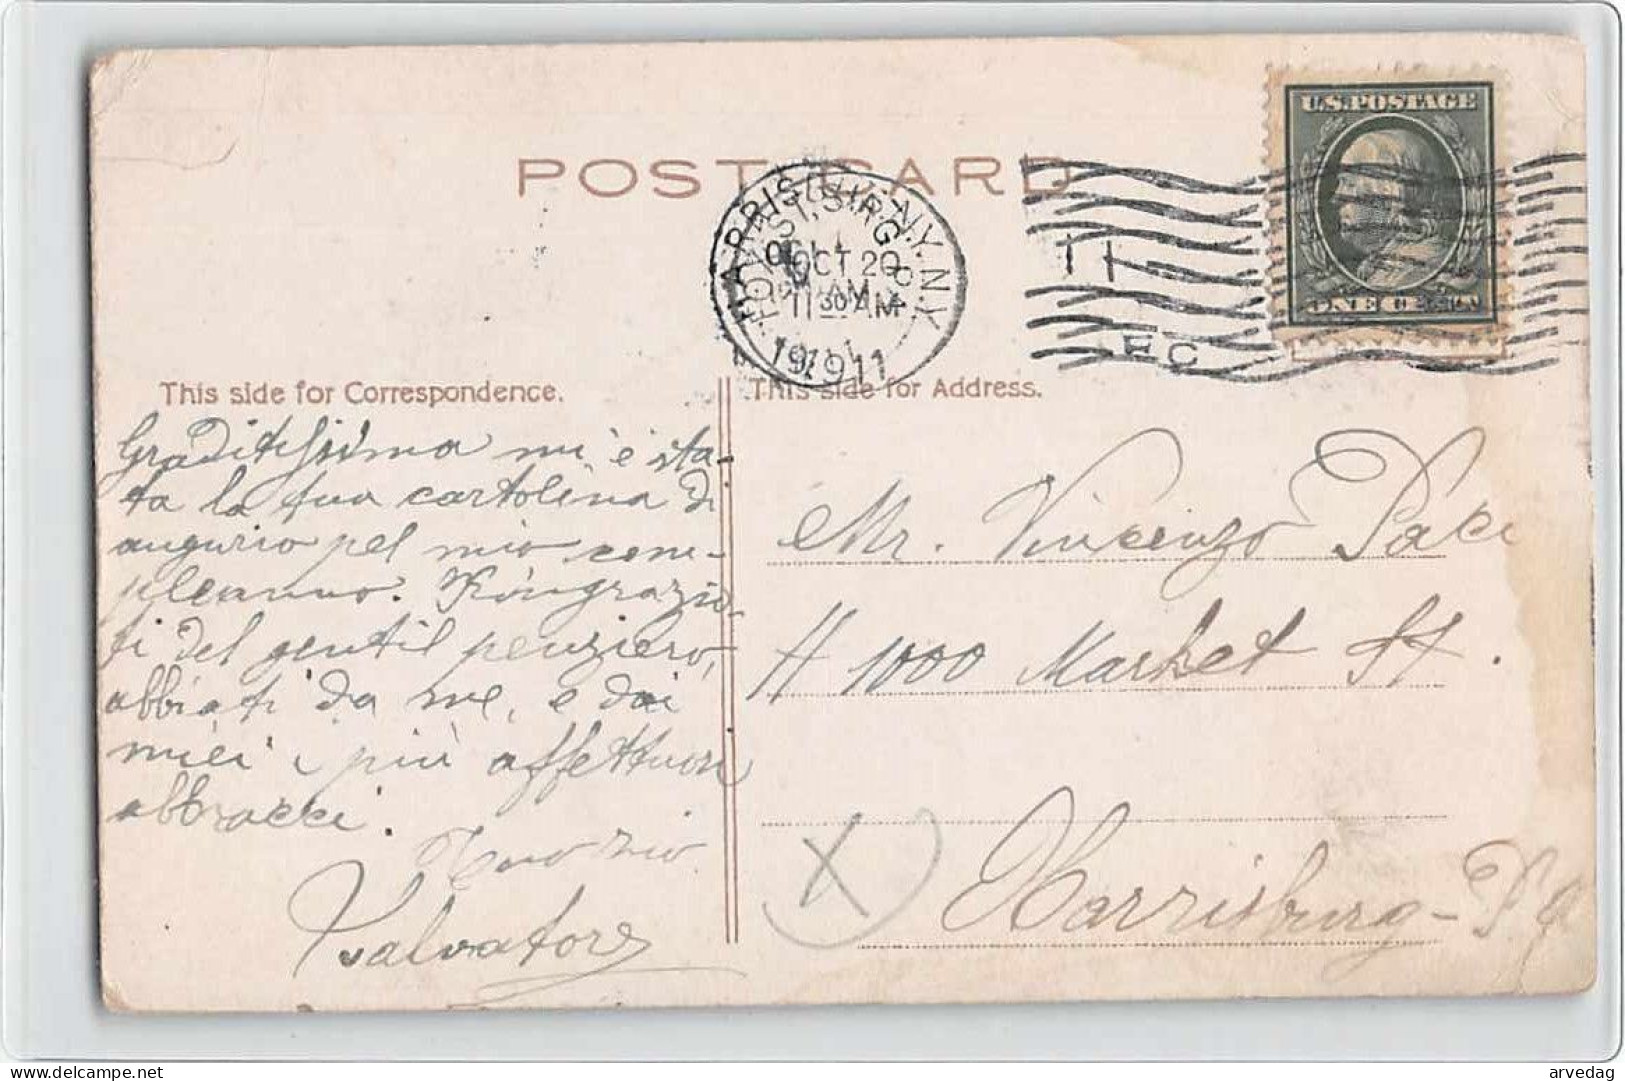 POST CARD
U.S. POSTAGE
ONE CENT
OCT 20
11 30 AM
1911
This side for Correspondence.
This side for Address.
Graditissima mi è sta-
ta la tua cartolina di
augurio pel mio com-
pleanno. Ringrazia-
ti del gentil pensiero,
abbiati da me, e dai
miei i più affettuosi
abbracci.
Tuo zio
Salvatore
Mr. Vincenzo Paci
# 1000 Market St.
X
Harrisburg - Pa
delcampe.net
arvedag